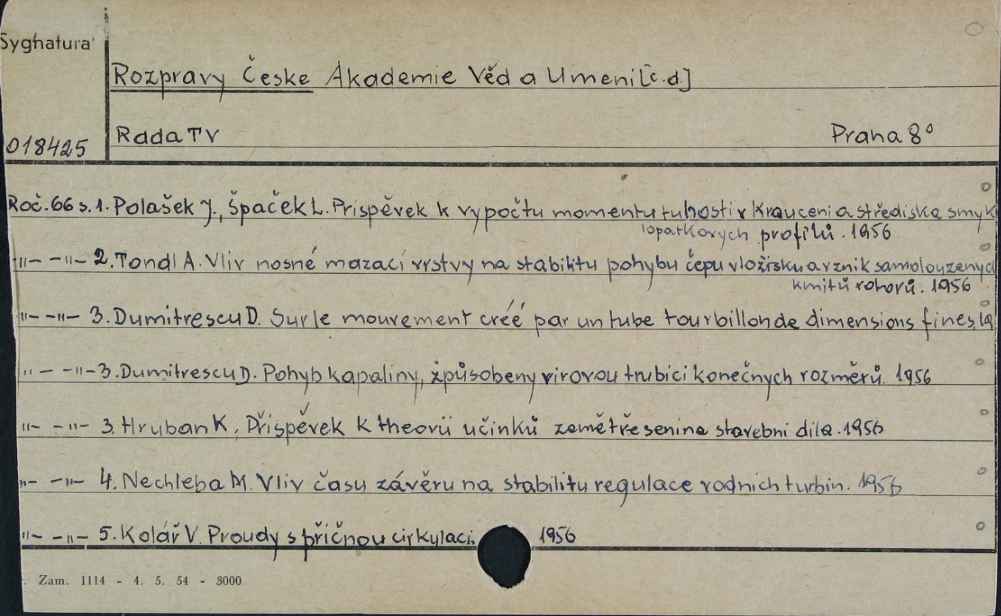 Syghatura
Rozpravy Česke Akademie Věd a Umeni [c.d.]
018425 Rada TV Praha 8°
Roč. 66 s. 1. Polašek J., Špaček L. Prispěvek k vypočtu momentu tuhosti v krouceni a střediska smyk
lopatkovych profilů. 1956
"- -"- 2. Tondl A. Vliv nosné mazací vrstvy na stabilitu pohybu čepu v ložisku a vznik samolouzenych
kmitů rotorů. 1956
"- -"- 3. Dumitrescu D. Sur le mouvement créé par un tube tourbillon de dimensions fines, 19
"- -"- 3. Dumitrescu D. Pohyb kapaliny, způsobeny virovou trubici konečnych rozměrů. 1956
"- -"- 3. Hruban K. Přispěvek k theorii učinků zemětřesenina stavebni dila. 1956
"- -"- 4. Nechleba M. Vliv času závěru na stabilitu regulace vodnich turbin. 1956
"- -"- 5. Kolář V. Proudy s příčnou cirkylaci. 1956
Zam. 1114 - 4. 5. 54 - 3000